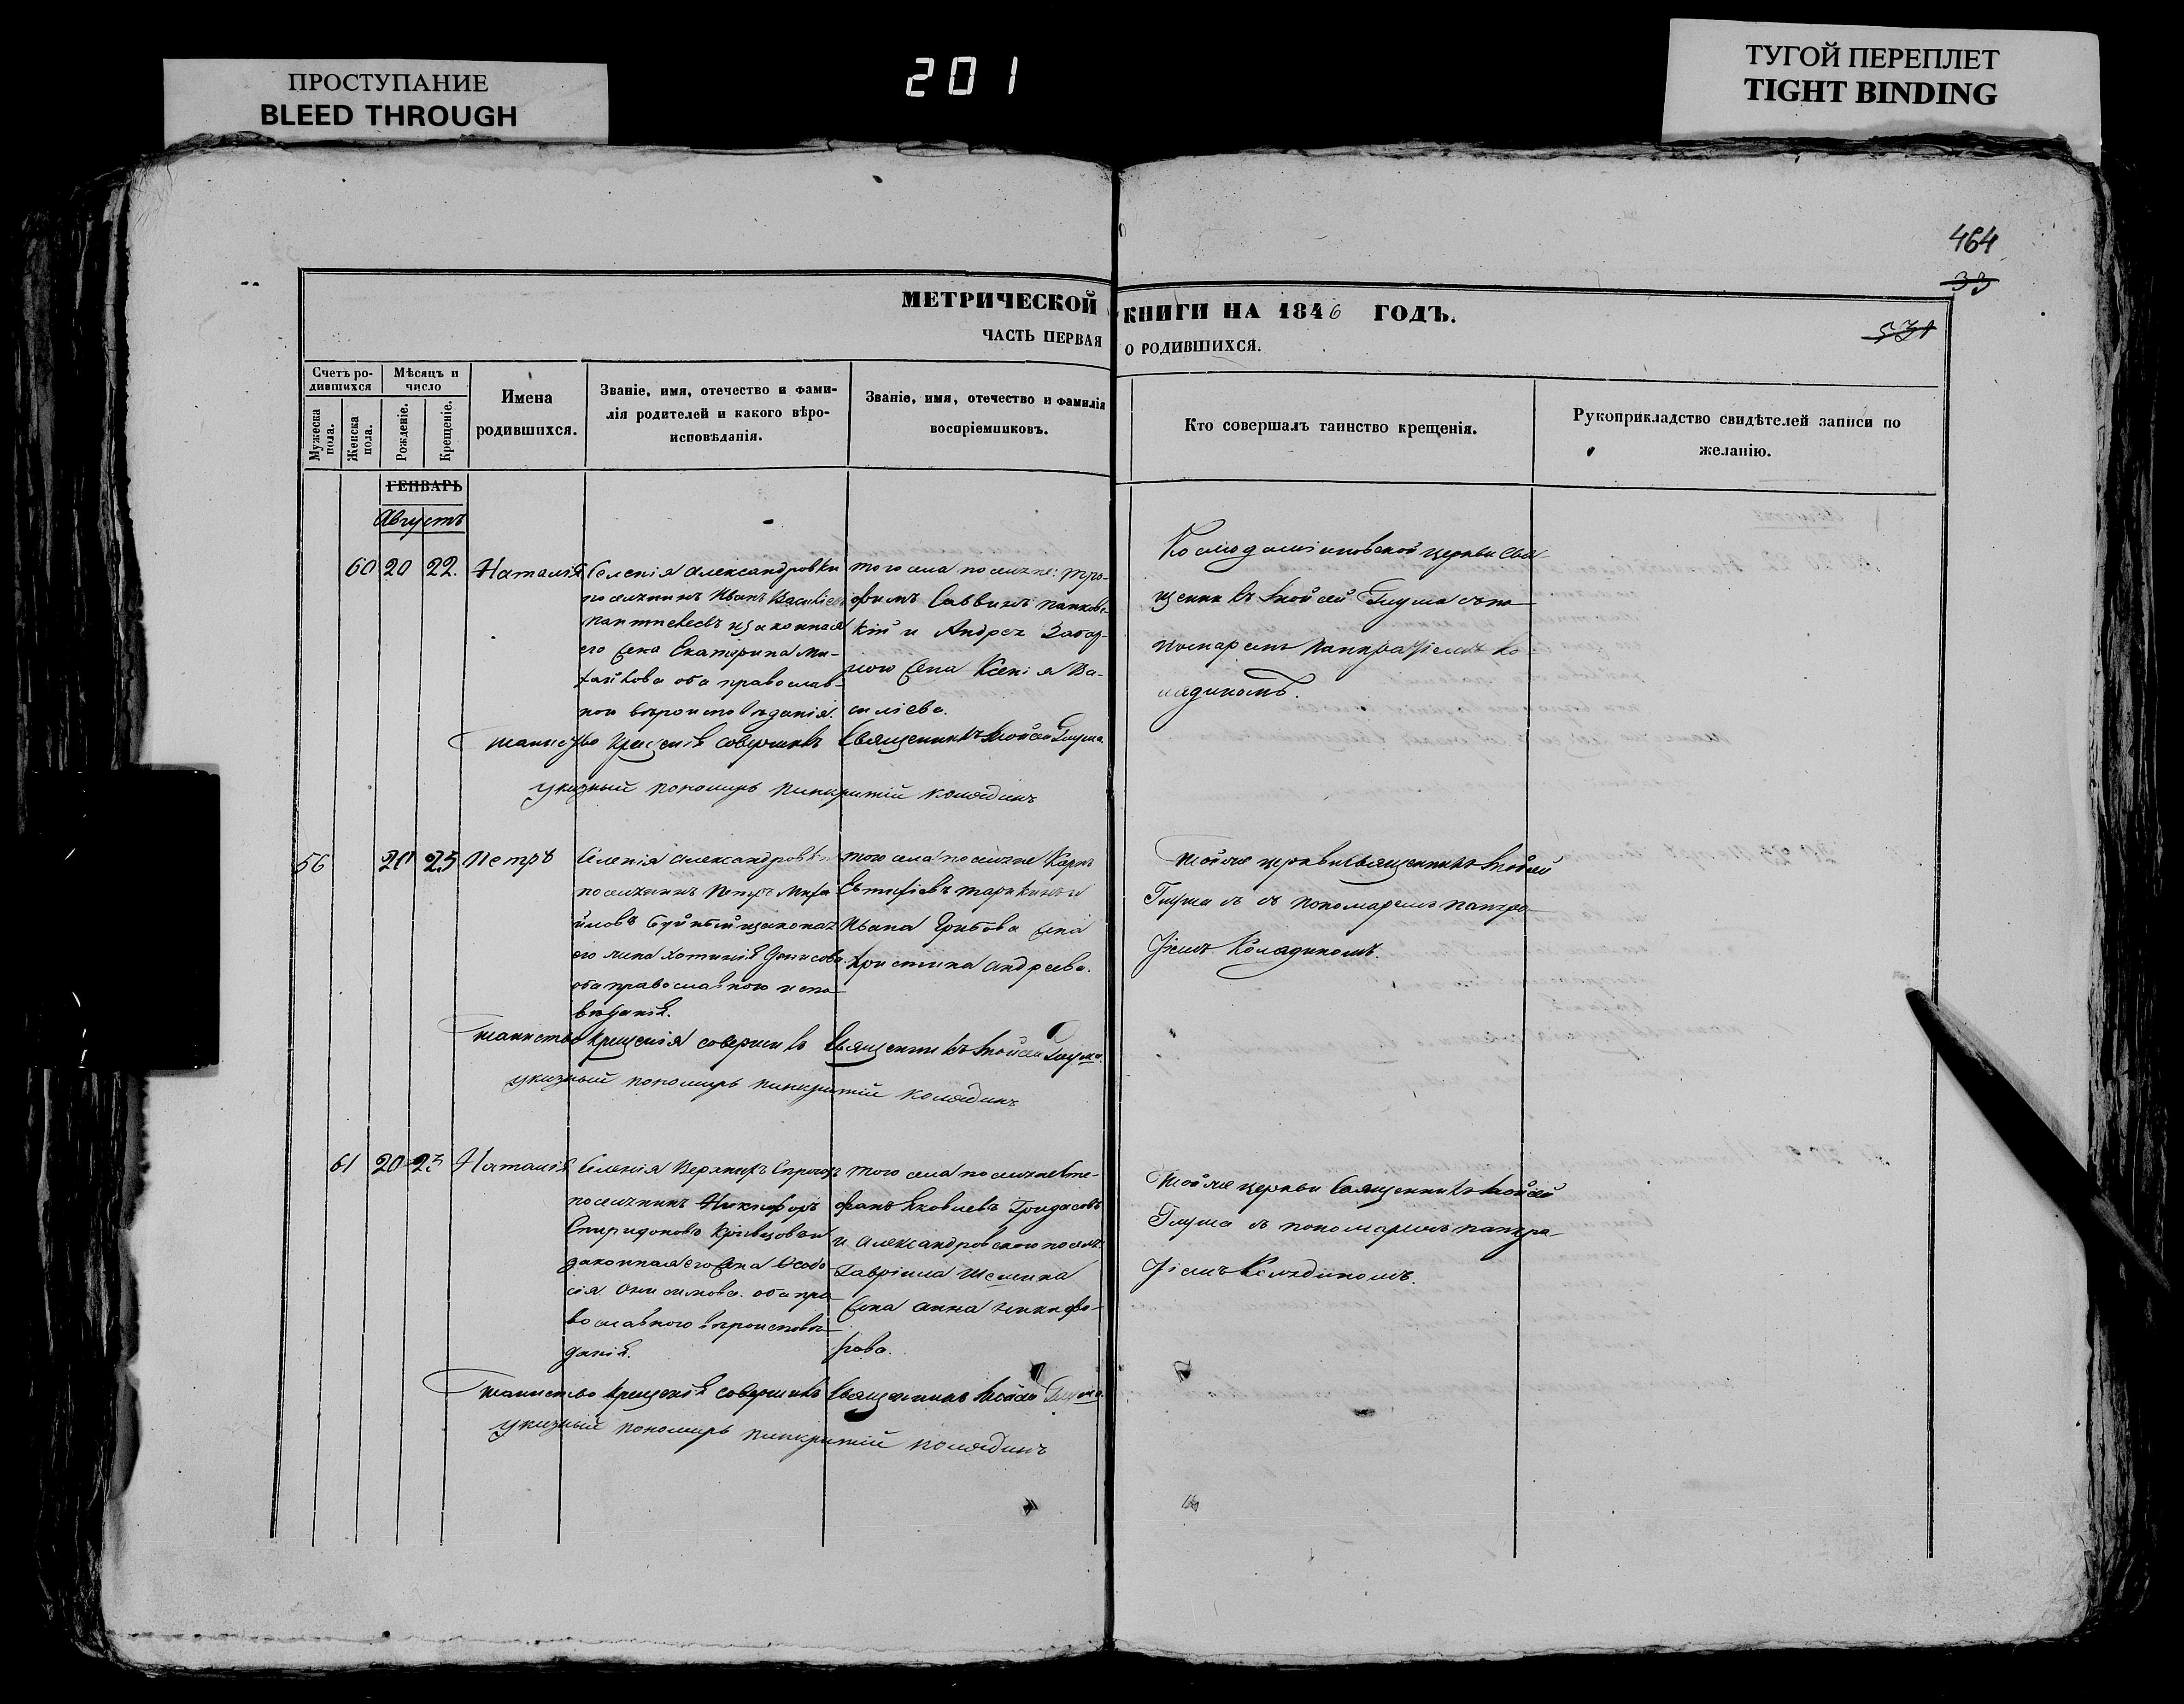 ПРОСТУПАНИЕ
BLEED THROUGH
201
ТУГОЙ ПЕРЕПЛЕТ
TIGHT BINDING
464
33
МЕТРИЧЕСКОЙ КНИГИ НА 1846 ГОДЪ.
ЧАСТЬ ПЕРВАЯ О РОДИВШИХСЯ.
Счетъ ро-
дившихся
Мужеска
пола.
Женска
пола.
Мѣсяцъ и
число
Рожденіе.
Крещеніе.
Имена
родившихся.
Званіе, имя, отечество и фами-
лія родителей и какого вѣро-
исповѣданія.
Званіе, имя, отечество и фамилія
воспріемниковъ.
Кто совершалъ таинство крещенія.
Рукоприкладство свидѣтелей записи по
желанію.
ГЕНВАРЬ
Августъ
60 20 22. Наталія
Селенія Александровки
поселянинъ Иванъ Василіевъ
законная
его жена Екатерина Ми-
хайлова оба православ-
вѣроисповѣданія.
того села поселяне: Тро-
фимъ Саввинъ Панков-
кій и Андрея
жена Ксенія Ва-
силіева.
церкви Свя-
щенникъ Моисей Глума съ по-
номаремъ Панкратіемъ Ко-
лядиномъ.
таинство крещенія совершилъ Священникъ Моисей Глума
указный пономарь Панкратій Колядинъ
56 20 23 Петръ
Селенія Александровки
поселянинъ Петръ Миха-
йловъ законная
его жена Денисова
оба православного испо-
вѣданія.
того села поселяне Карпъ
Евтифіевъ и
Ивана Грибова жена
Христина Андреева.
Той же церкви священникъ Моисей
Глума съ пономаремъ Панкра-
тіемъ Колядиномъ.
таинство крещенія совершилъ Священникъ Моисей Глума.
указный пономарь Панкратій Колядинъ
61 20 23 Наталія
Селенія
поселянинъ Никифоръ
Спиридоновъ Кривцовъ и
законная его жена Ѳеодо-
сія Онисимова. оба пра-
вославного вѣроисповѣ-
данія.
того села поселяне Сте-
фанъ Яковлевъ Гридасовъ
и Александровского посел.
Гавріила
жена Анна Никифо-
рова.
Той же церкви Священникъ Моисей
Глума съ пономаремъ Панкра-
тіемъ Колядиномъ.
таинство крещенія совершилъ Священникъ Моисей Глума
указный пономарь Панкратій Колядинъ